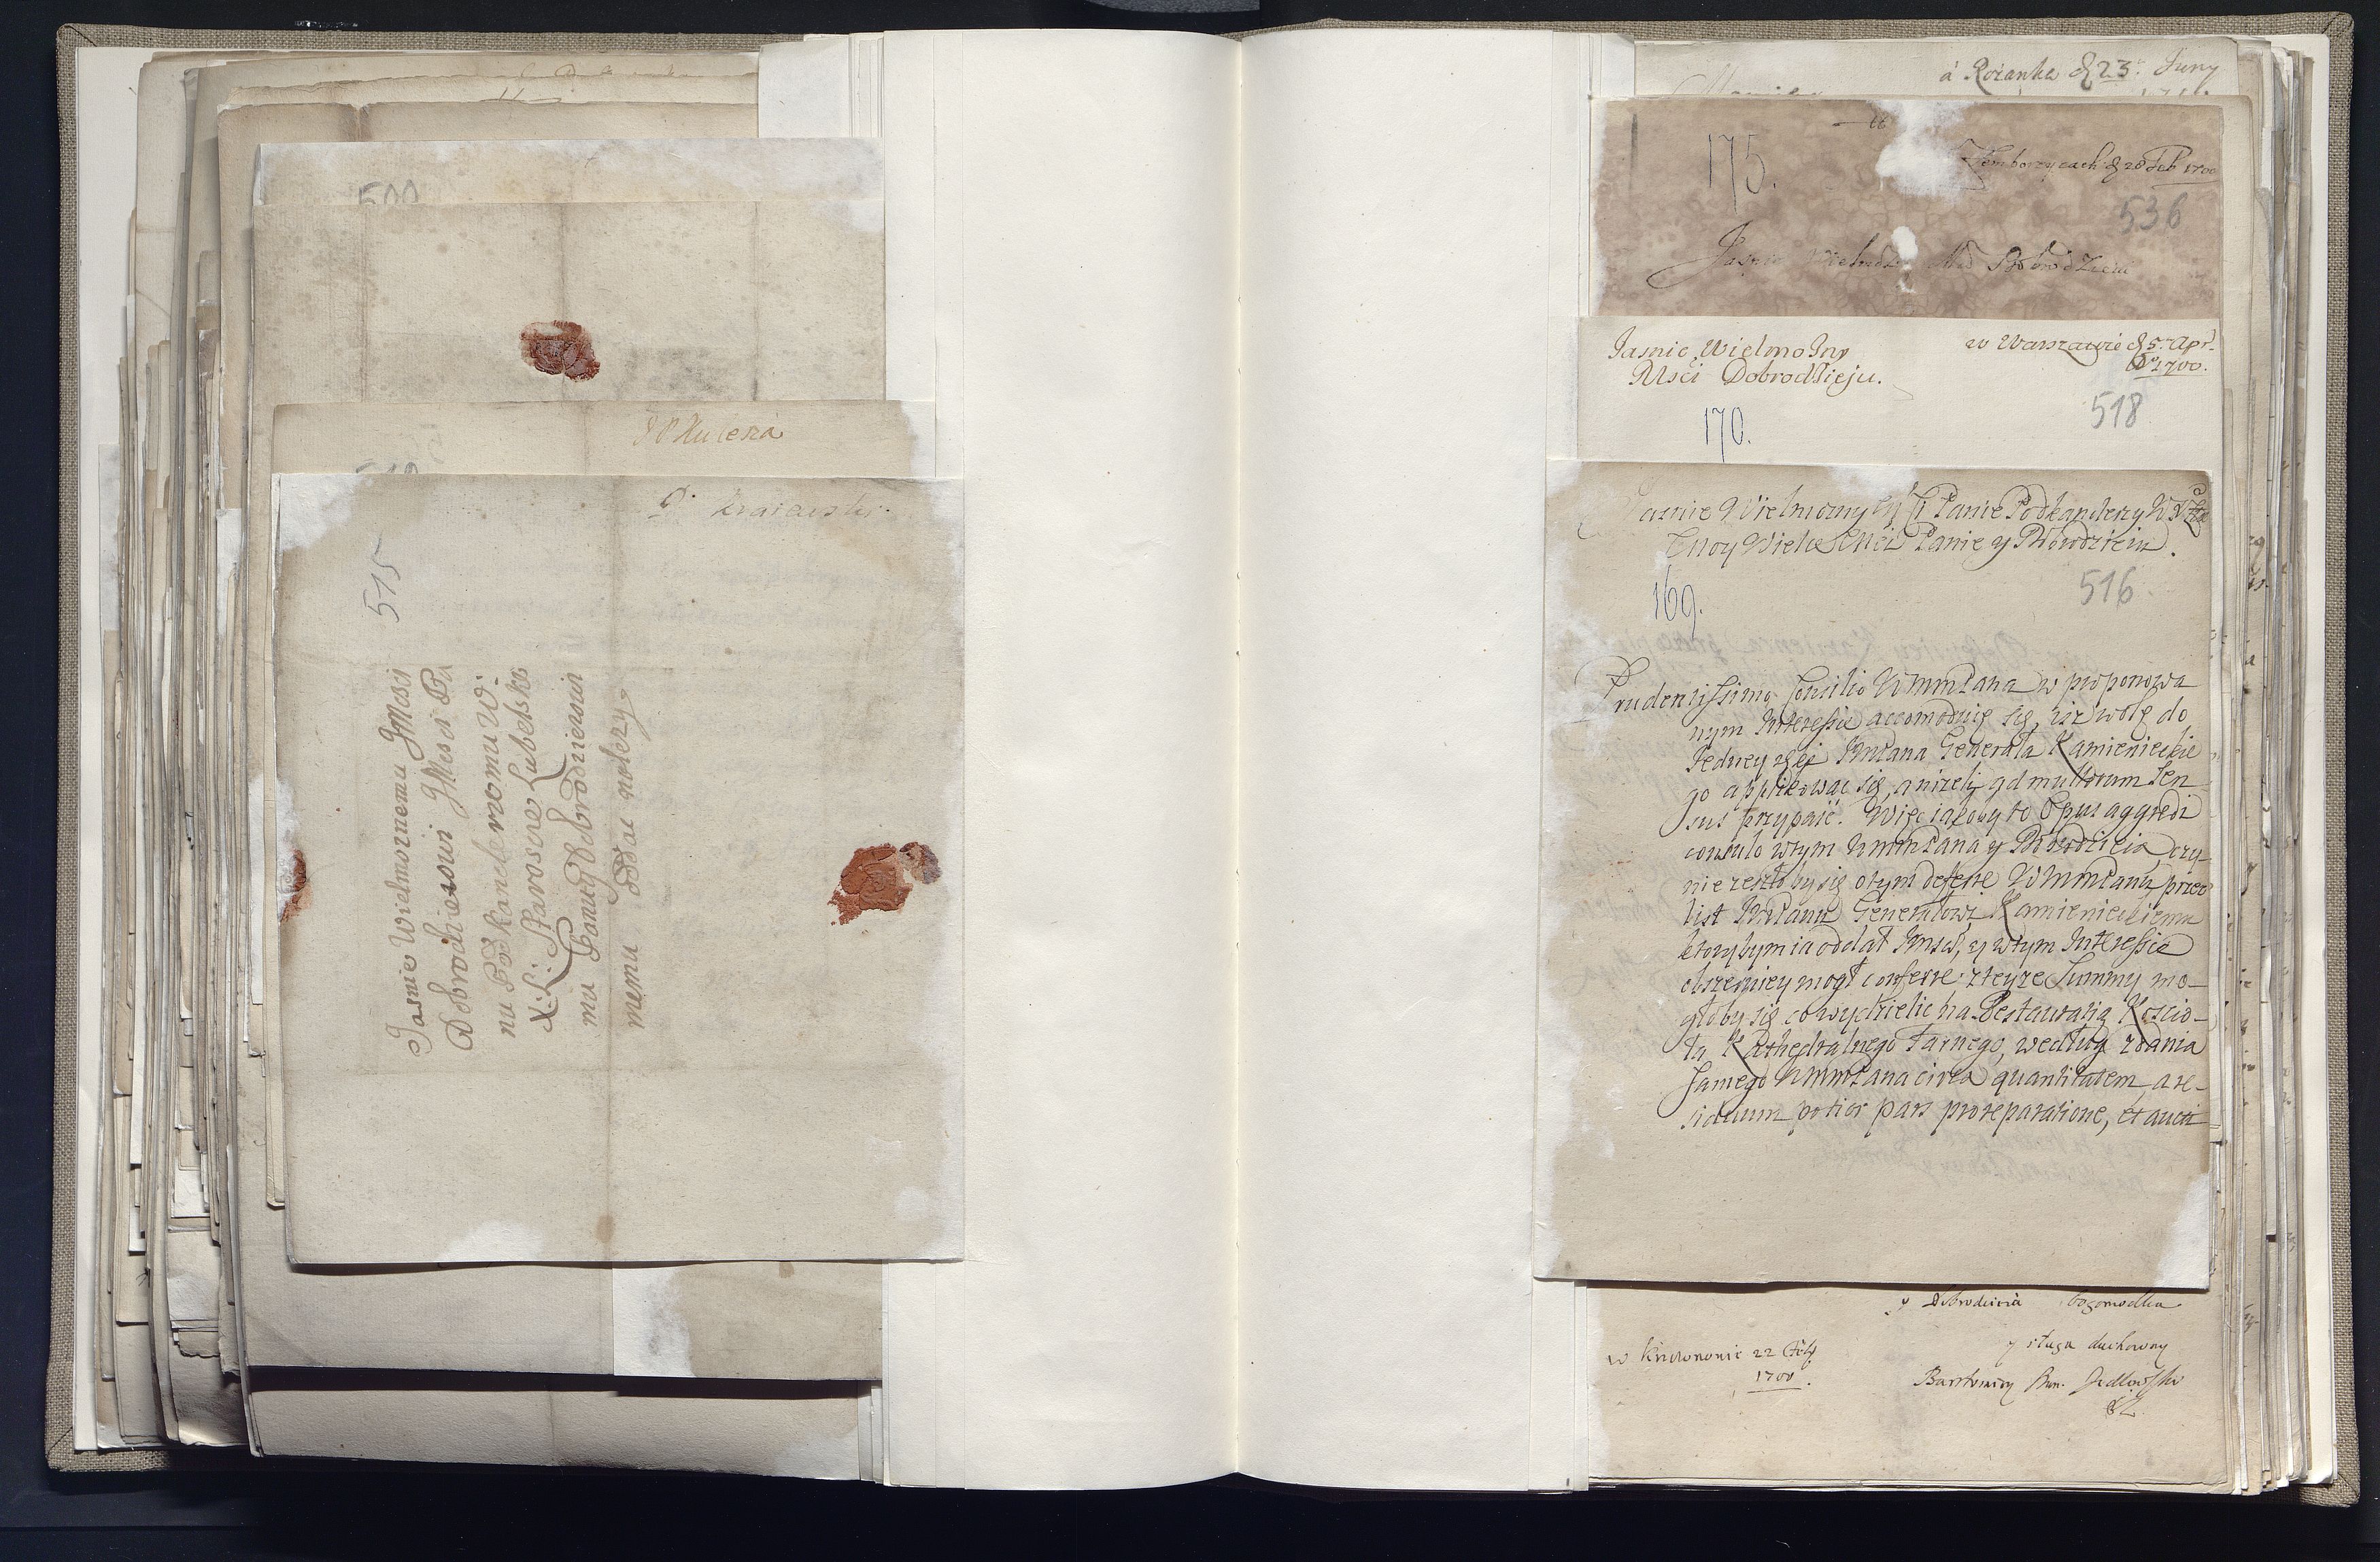 500
JP Kulesza
P. Kraiewski
515
Jasnie Wielmoznemu JMosci
Dobrodzieiowi JMosci Pa
nu Podkanclerzomu W.
X. L: Staroscie Lubelskie
mu Panu y Dobrodzieiowi
memu oddac nalezy
à Rożanka d 23 Juny
175.
Zemborzycach d 28 Feb 1700
536
Jasnie Dobrodzieiu
Jasnie Wielmożny
Msci Dobrodzieju.
w Warszawie d 5 Apr.
1700.
518
170.
Jasnie Wielmozny Panie Podkanclerzy W X
Moy Wielce Mci Panie y Dobrodzieiu.
516
169.
Prudentissimo Consilio WmmPana w proponowa
nym Interessie accomoduię się, isz wolę do
Jedney JmPana Generała Kamienieckie
go applikować się, aniżeli ad multorum Sen
sus przypaść. Więc iakowyto Opus aggredi
consulo wtym WmmPana y Dobrodzieia, czy
nie zeszłoby się otym deferre WmmPanu, przez
list JmPanu Generałowi Kamienieckiemu
ktorybym ia oddał Jmsci, y wtym Interessie
obszerniey mogł conferre: zteyze Summy mo-
głoby się co wydzielic na Restauratią Koscio-
ła Kathedralnego Farnego, według zdania
samego WmmPana circa quantitatem, a re-
siduum potior pars pro reparatione, et aucti
y Dobrodzieia bogomodlca
y sługa duchowny
w 22
1700.